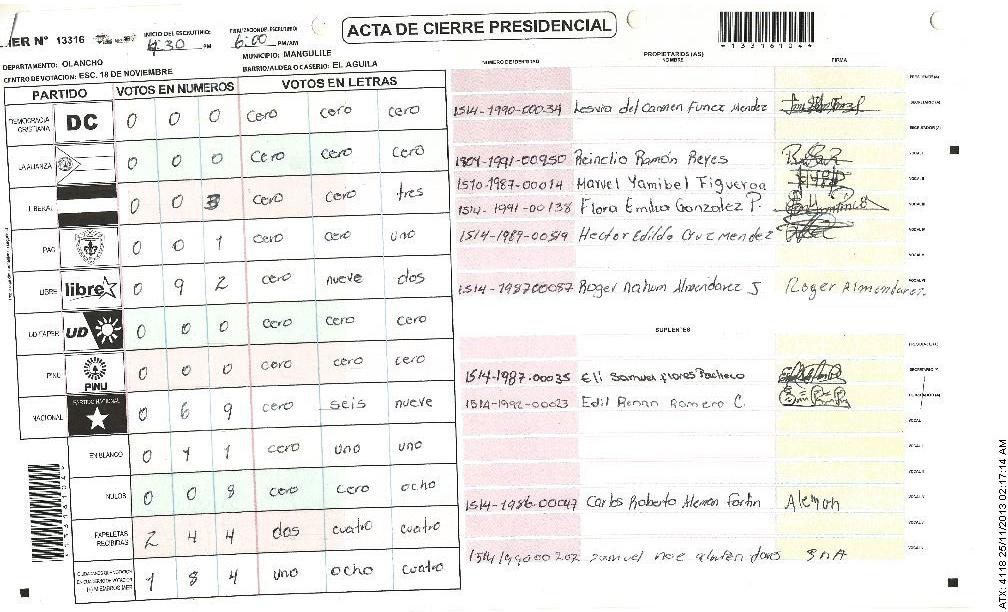 ACTA DE CIERRE PRESIDENCIAL
MER N° 13316
INICIO DEL ESCRUTINIO: 4:30 PM
FINALIZACION DEL ESCRUTINIO: 6:00 PM/AM
*133161044*
DEPARTAMENTO: OLANCHO
MUNICIPIO: MANGULILE
CENTRO DE VOTACION: ESC. 18 DE NOVIEMBRE
BARRIO/ALDEA O CASERIO: EL AGUILA
PARTIDO VOTOS EN NUMEROS VOTOS EN LETRAS
DEMOCRACIA CRISTIANA DC 0 0 0 cero cero cero
LA ALIANZA 0 0 0 cero cero cero
LIBERAL 0 0 3 cero cero tres
PAC 0 0 1 cero cero uno
LIBRE libre 0 9 2 cero nueve dos
UD FAPER UD 0 0 0 cero cero cero
PINU PINU 0 0 0 cero cero cero
NACIONAL PARTIDO NACIONAL 0 6 9 cero seis nueve
EN BLANCO 0 1 1 cero uno uno
NULOS 0 0 8 cero cero ocho
PAPELETAS RECIBIDAS 2 4 4 dos cuatro cuatro
1 8 4 uno ocho cuatro
*133161044*
PROPIETARIOS (AS)
NUMERO DE IDENTIDAD NOMBRE FIRMA
PRESIDENTE(A)
1514-1990-00034 Lesvia del Carmen Funez Mendez SECRETARIO(A)
ESCRUTADOR(A)
1804-1991-00950 Reinelio Ramón Reyes VOCAL I
1510-1987-00014 Marvel Yamibel Figueroa VOCAL II
1514-1991-00138 Flora Emilia Gonzalez P. VOCAL III
1514-1989-00519 Hector Edildo Cruz Mendez VOCAL IV
VOCAL V
1514-198700087 Roger Nahum Almendarez S Roger Almendarez. VOCAL VI
SUPLENTES
1514-1987-00035 Eli Samuel flores Pacheco
1514-1992-00023 Edil Renan Romero C.
1514-1986-00047 Carlos Roberto Aleman Fortin Aleman
1514199000202 Samuel noe
ATX: 4118 25/11/2013 02:17:14 AM